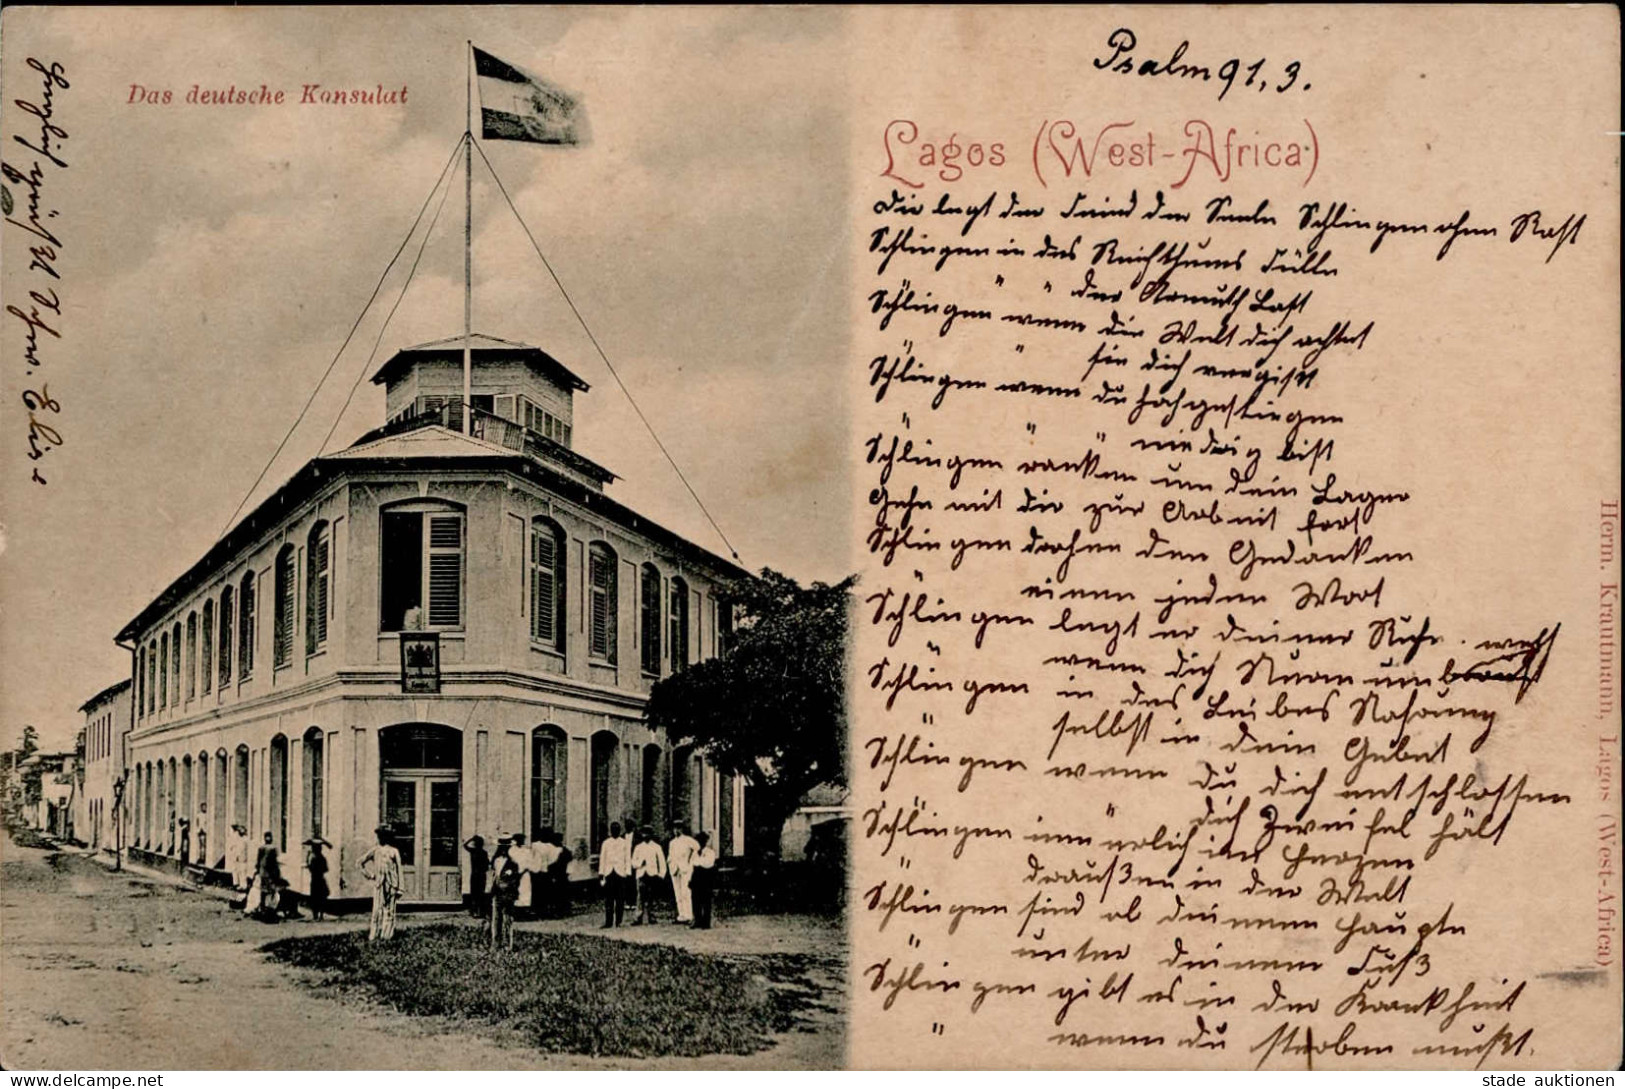 Das deutsche Konsulat
Psalm 91,3.
Lagos (West-Africa)
Dir legt der Feind der Seele Schlingen ohne Rast
Schlingen in des Reichthums Fülle
" " der Armuth Last
Schlingen wenn die Welt dich achtet
" " sie dich vergißt
Schlingen wenn du hochgestiegen
" " " niedrig bist
Schlingen ranken um dein Lager
Gehn mit dir zur Arbeit fort
Schlingen drohen den Gedanken
einem jeden Wort
Schlingen legt er deiner Ruhe
" wenn dich Sturm umbraust weht
Schlingen in des Leibes Nahrung
" selbst in dein Gebet
Schlingen wenn du dich entschlossen
" " dich Zweifel hält
Schlingen innerlich im Herzen
" draußen in der Welt
Schlingen sind ob deinem Haupte
" unter deinem Fuß
Schlingen gibt es in der Krankheit
" wenn du sterben mußt.
Herzlich grüßt Elise
Herm. Krautmann, Lagos (West-Africa)
stade auktionen